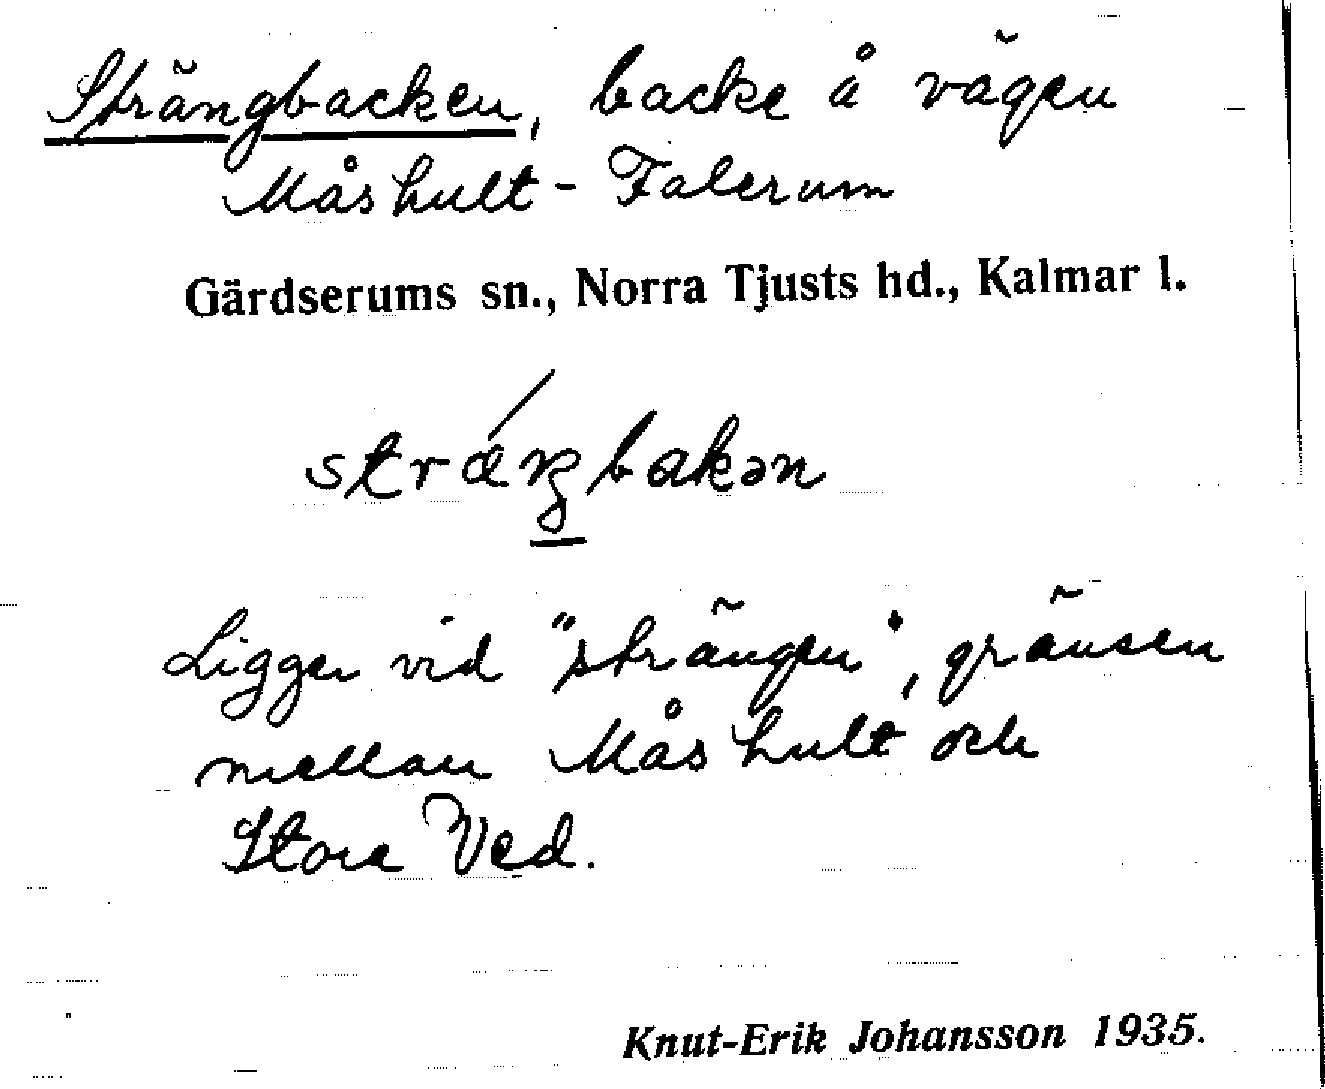 Strängbacken, backe å vägen
Måshult - Falerum
Gärdserums sn., Norra Tjusts hd., Kalmar l.
strǽŋbakən
Ligger vid "strängen", gränsen
mellan Måshult och
Stora Ved.
Knut-Erik Johansson 1935.